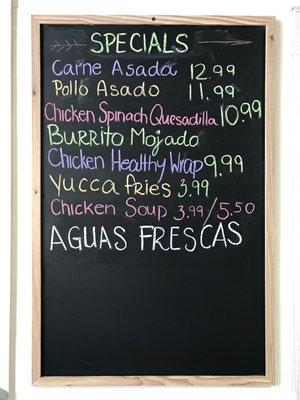 SPECIALS
Carne Asada 12.99
Pollo Asado 11.99
Chicken Spinach Quesadilla 10.99
Burrito Mojado
Chicken Healthy Wrap 9.99
Yucca fries 3.99
Chicken Soup 3.99/5.50
AGUAS FRESCAS